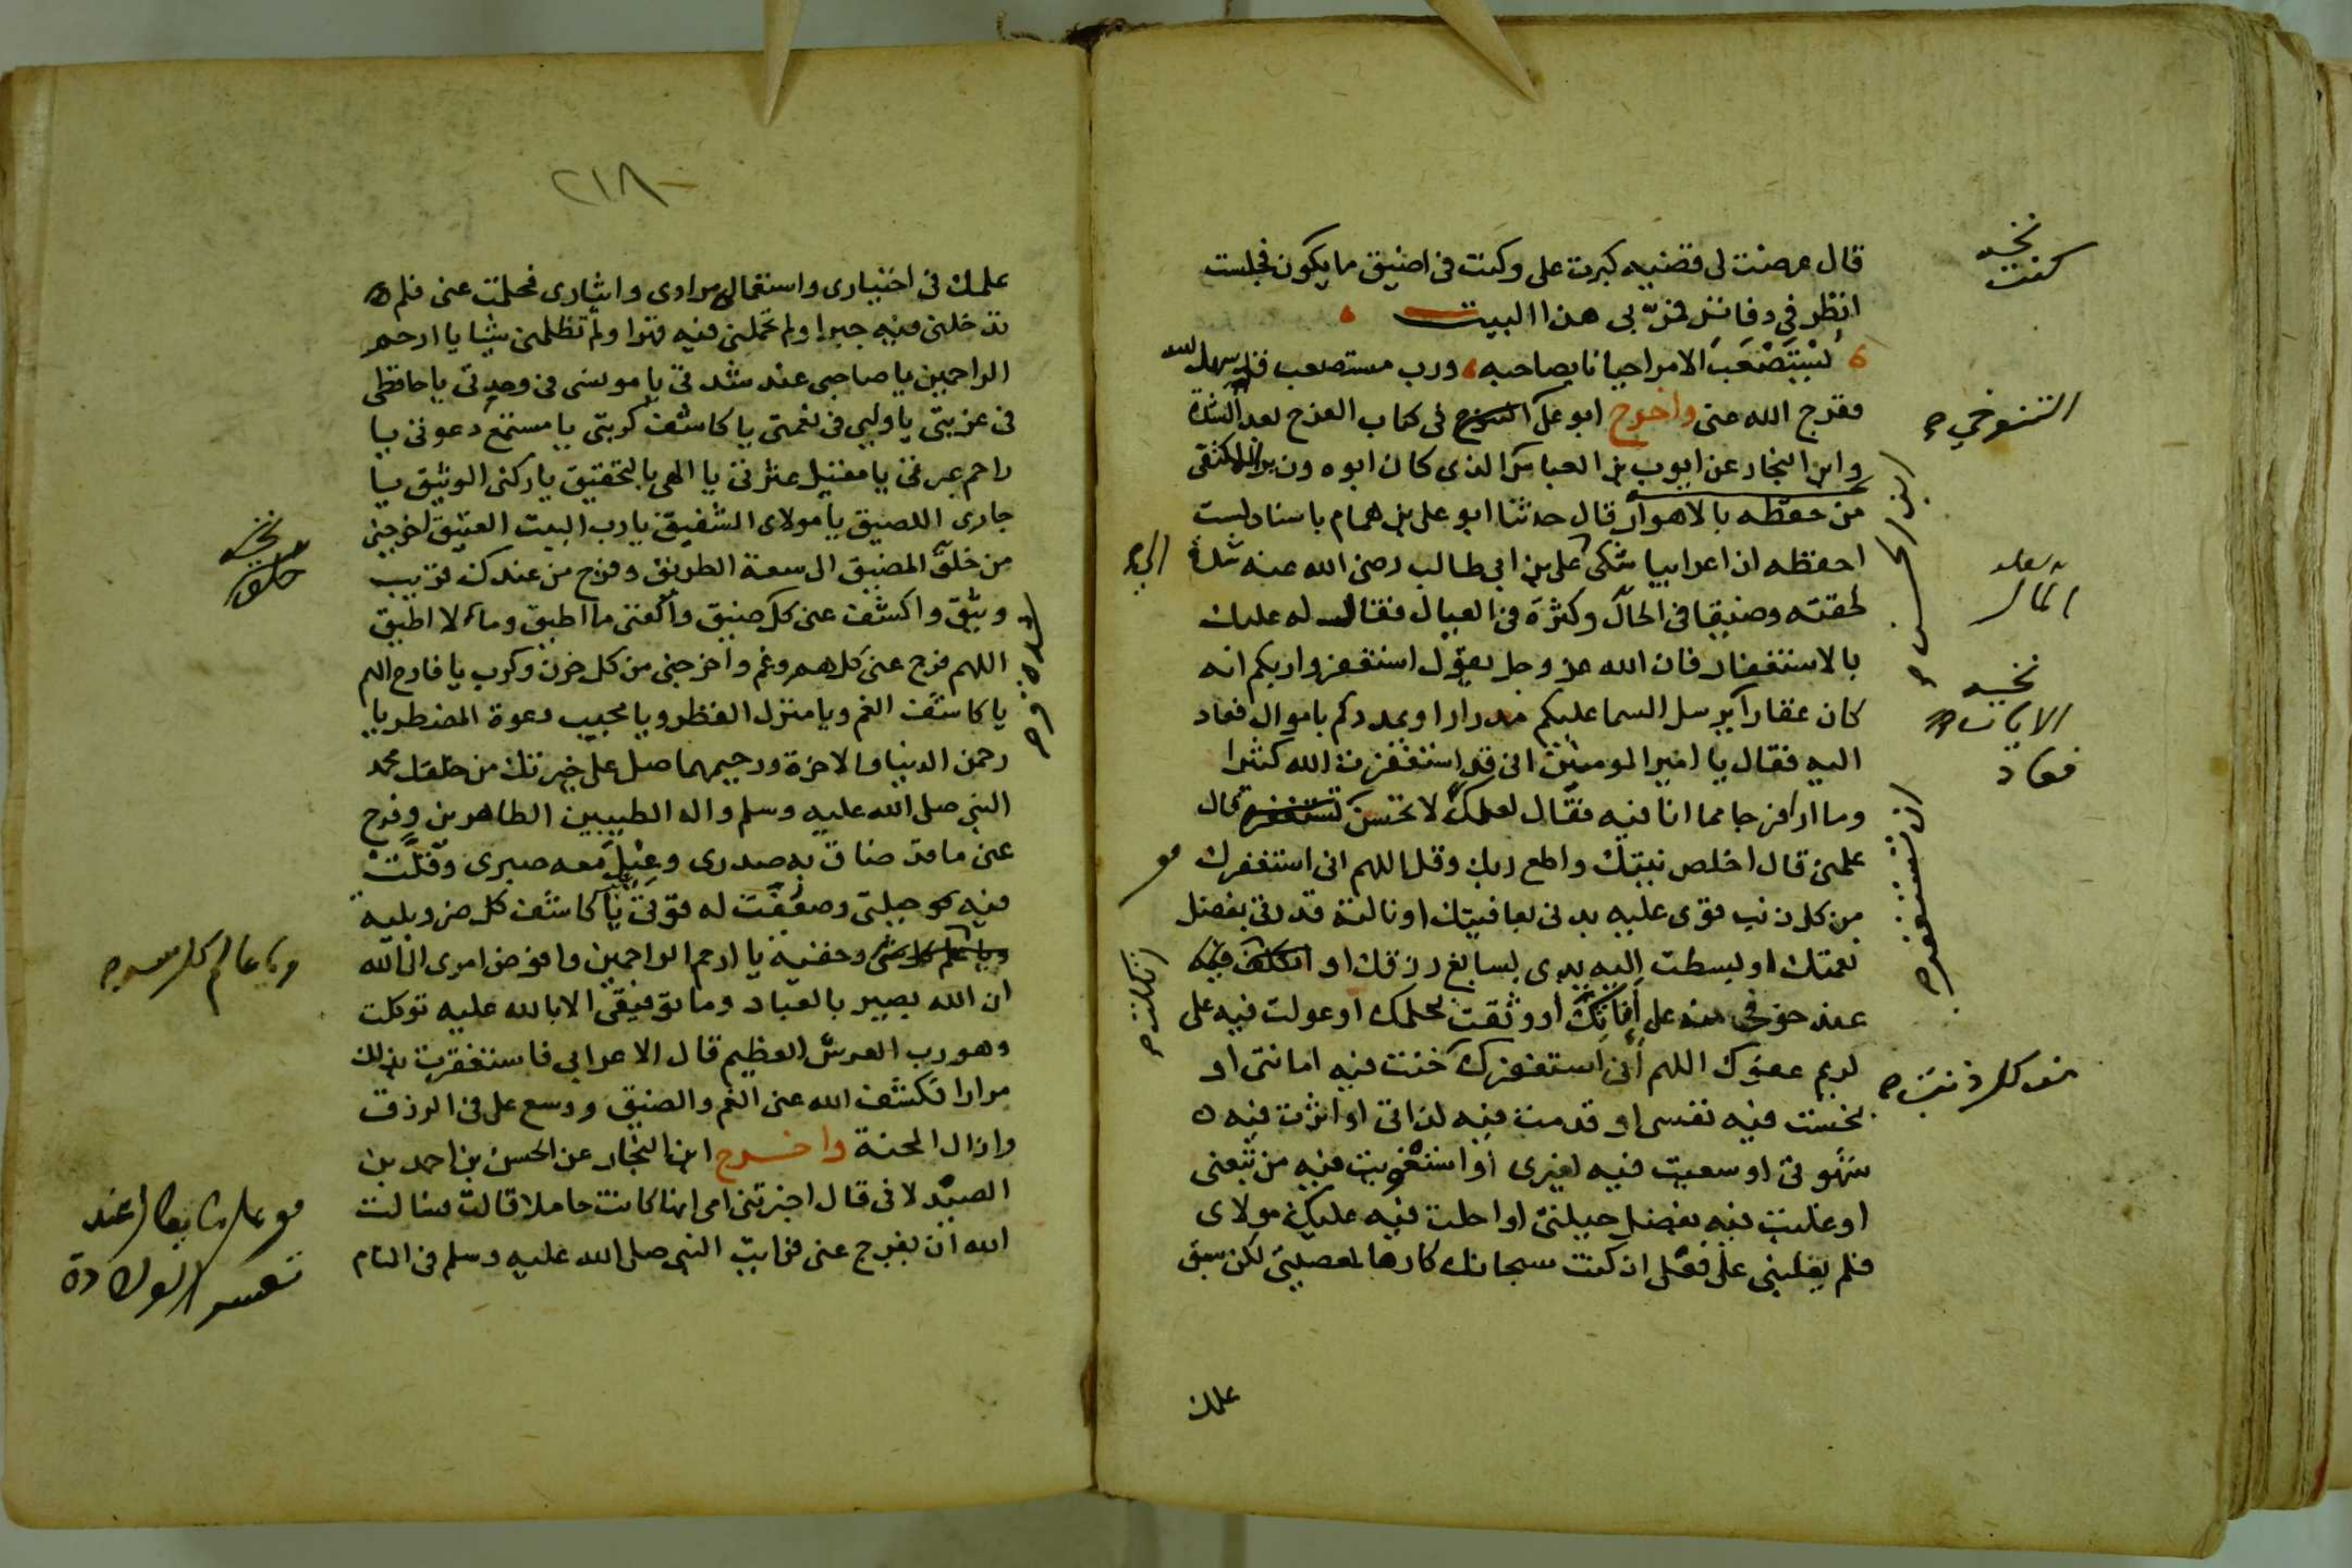 قال عرضت لى قضيه كبرت على وكنت فى اضيق ما يكون فجلست
انظر في دفاتر فمر بى هذا البيت
يُسْتَصْعَبَ الامر احيانا بصاحبه ورب مستصعب قد سهل الله
ففرج الله عنى واخرج ابو على التنوخي فى كتاب الفرج بعد الشدة
وابن النجار عن ايوب بن العباس الذى كان ابوه وزير المكتفى
من حفظه بالاهواز قال حدثنا ابو على بن همام باسناد لست
احفظه ان اعرابيا شكى على بن ابى طالب رضى الله عنه شدة
لحقته وضيقا فى الحال وكثرة فى العيال فقال له عليك
بالاستغفار فان الله عز وجل يقول استغفروا ربكم انه
كان غفارا يرسل السما عليكم مدرارا ويمددكم باموال فعاد
اليه فقال يا امير المومنين انى قد استغفرت الله كثيرا
وما ارا فرجا مما انا فيه فقال لعلك لا تحسن تستغفر قال
علمنى قال اخلص نيتك واطع ربك وقل اللهم انى استغفرك
من كل ذنب قوى عليه بدنى بعافيتك او نالته قدرتى بفضل
نعمتك او بسطت اليه يدى بسابغ رزقك او اتكلت فيه
عند خوفى منه على أَنَاتِكَ او وثقت بحلمك او عولت فيه على
كريم عفوك اللهم انى استغفرك خنت فيه امانتى او
بخست فيه نفسى او قدمت فيه لذاتى او اثرت فيه
شهوتى او سعيت فيه لغيرى او استغويت فيه من تبعنى
او غلبت فيه بفضل حيلتى او احلت فيه عليك مولاى
فلم يغلبنى على فعلى ان كنت سبحانك كارها لمعصيتى لكن سبق
علمك
نخسه
كنت
التنوخي صح
ابو الحسن صح
المال
نخسه
الايات
فعاد
ان تستغفر صح
من كل ذنب صح
الى صح
اتكلت صح
٢١٨
علمك فى اختيارى واستعمال مرادى وايثارى فحلمت عنى فلم
تدخلنى فيه جبرا ولم تحملنى فيه قهرا ولم تظلمنى شيا يا ارحم
الراحمين يا صاحبى عند شدتى يا مونسى فى وحدتى يا حافظى
فى غربتى يا وليى فى نعمتى يا كاشف كربتى يا مستمع دعوتى يا
راحم عبرتى يا مقيل عثرتى يا الهى بالتحقيق يا ركنى الوثيق يا
جارى اللصيق يا مولاى الشفيق يا رب البيت العتيق اخرجنى
من حلق المضيق الى سعة الطريق وفرج من عندك قريب
وثيق واكشف عنى كل ضيق واكفنى ما اطيق وما لا اطيق
اللهم فرج عنى كل هم وغم واخرجنى من كل حزن وكرب يا فارج الهم
يا كاشف الغم ويا منزل القطر ويا مجيب دعوة المضطر يا
رحمن الدنيا والاخرة ورحيمهما صل على خيرتك من خلقك محمد
النبى صلى الله عليه وسلم واله الطيبين الطاهرين وفرج
عنى ما قد ضاق به صدرى وعيل معه صبرى وقلت
فيه حيلتى وضعفت له قوتى يا كاشف كل ضر وبليه
وخفيه يا ارحم الراحمين وافوض امرى الى الله
ان الله بصير بالعباد وما توفيقى الا بالله عليه توكلت
وهو رب العرش العظيم قال الاعرابى فاستغفرت بذلك
مرارا فكشف الله عنى الغم والضيق ووسع على فى الرزق
وازال المحنة واخرج ابن النجار عن الحسن بن احمد بن
الصيدلانى قال اخبرتنى امى انها كانت حاملا قالت فسالت
الله ان يفرج عنى فرايت النبى صلى الله عليه وسلم فى المنام
نخسه
حلق
ويا عالم كل سر صح
تعسر الولادة